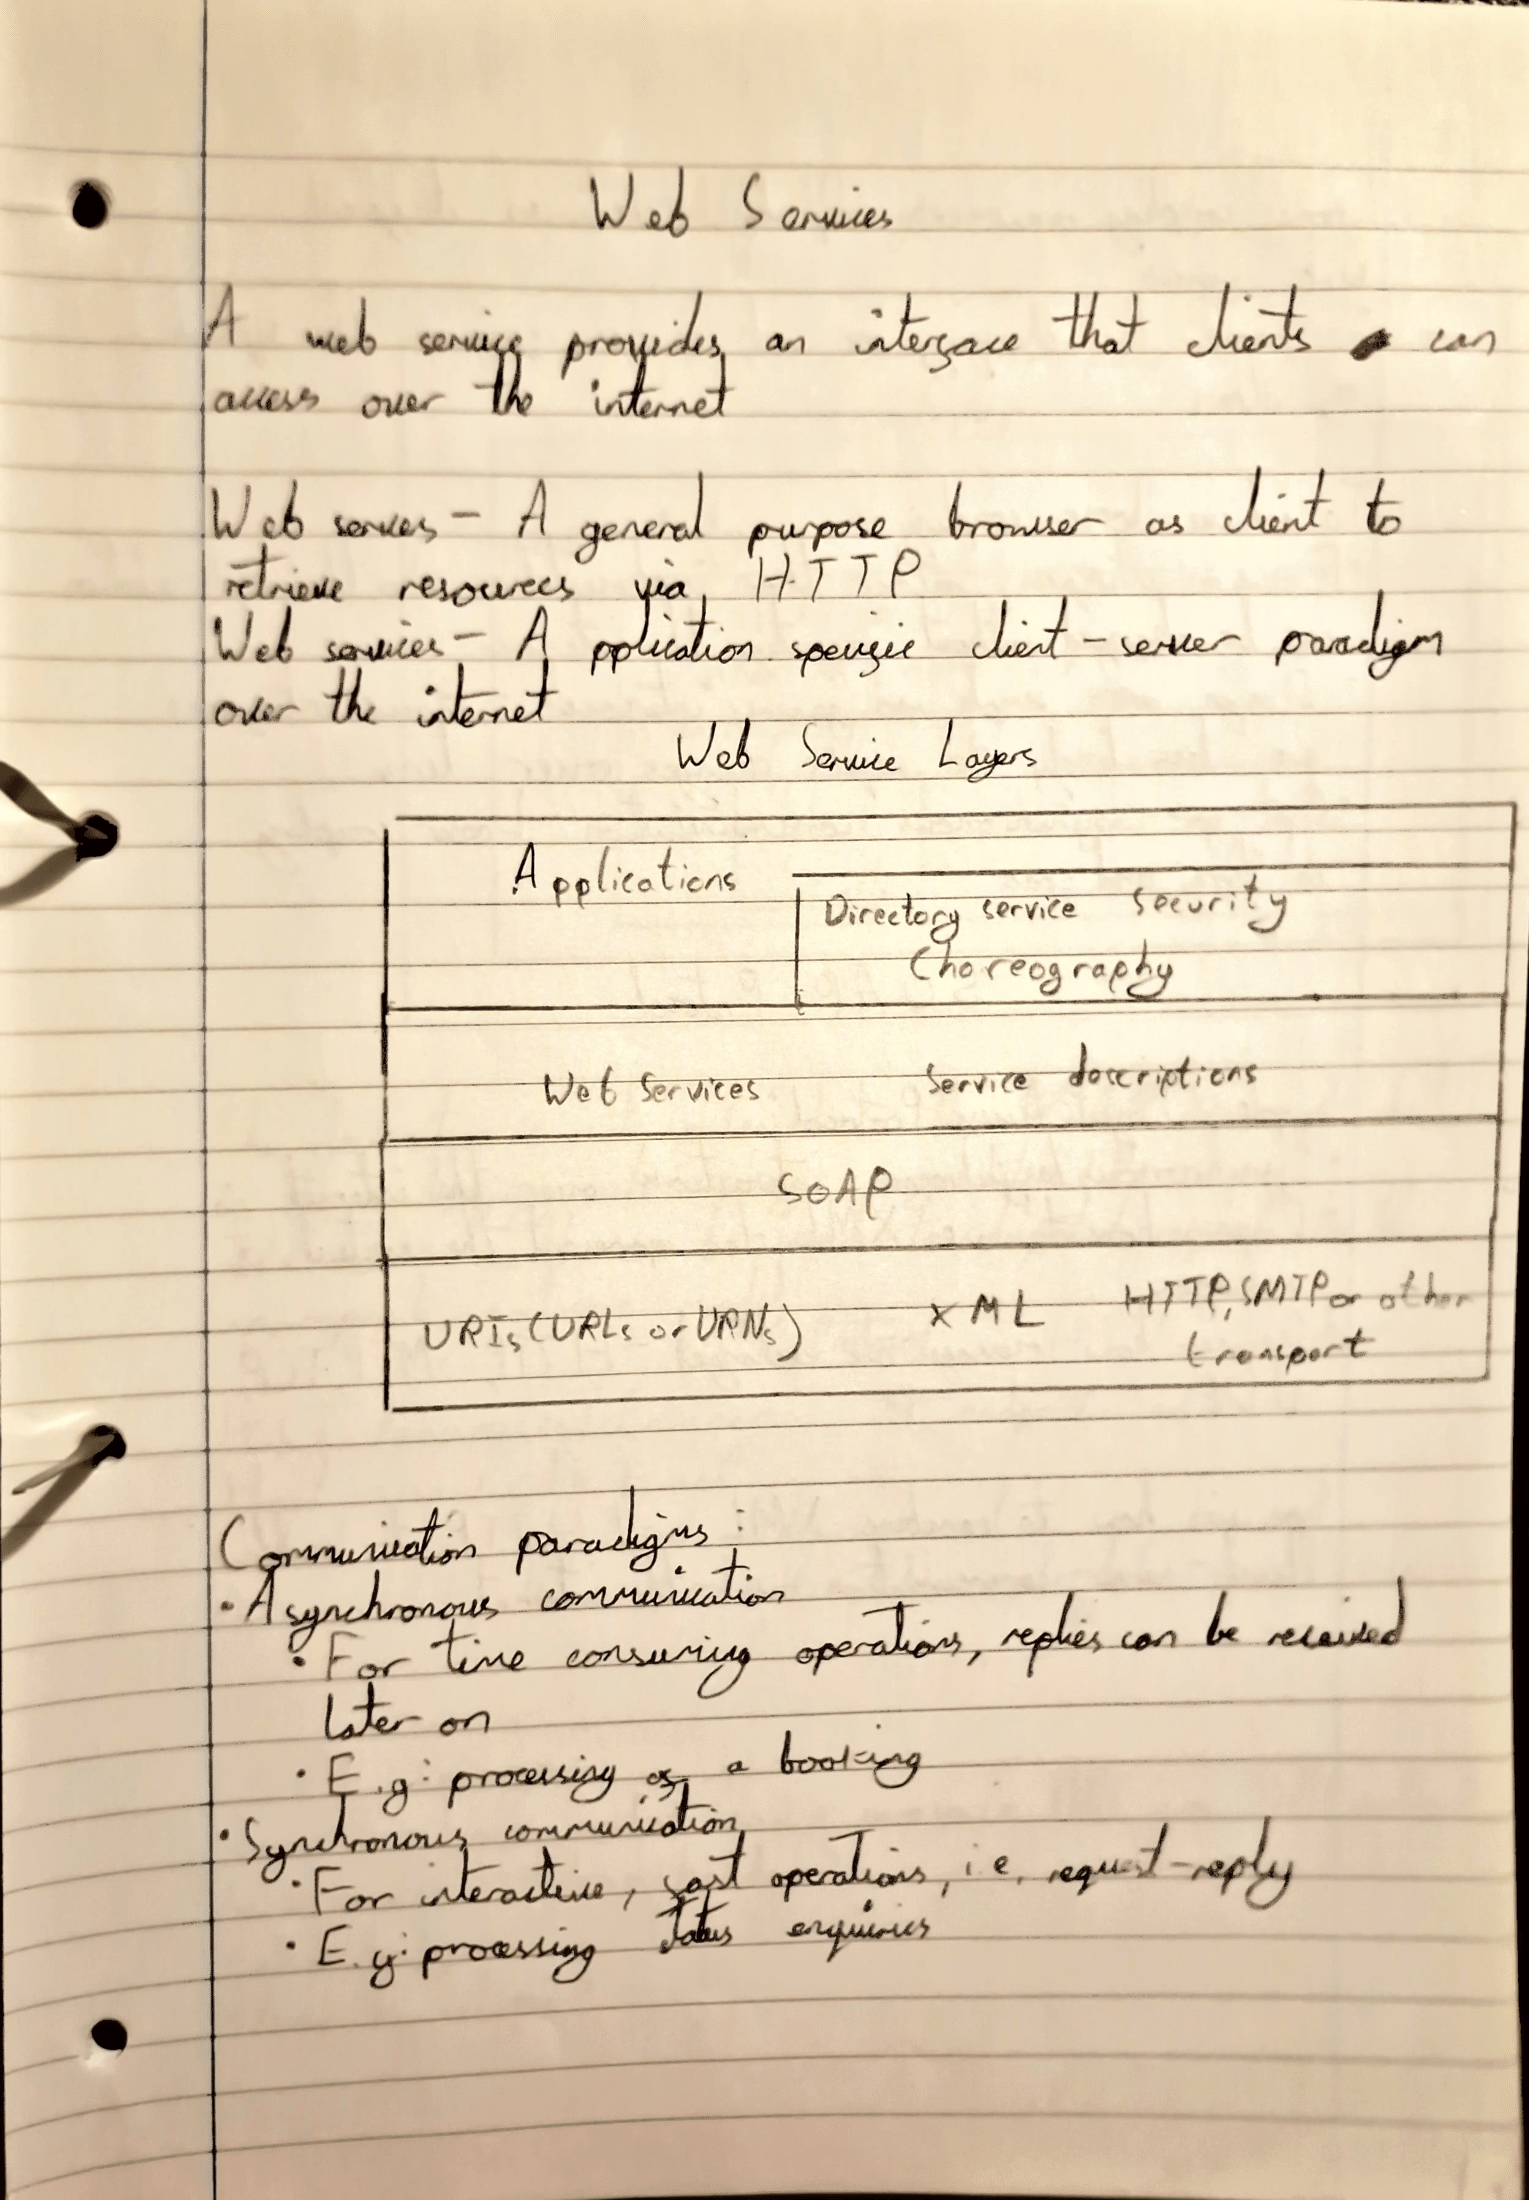 Web Services
A web service provides an interface that clients can
access over the internet
Web servers - A general purpose browser as client to
retrieve resources via HTTP
Web services - Application specific client-server paradigm
over the internet
Web Service Layers
Applications
Directory service Security
Choreography
Web Services Service descriptions
SOAP
URIs (URLs or URNs) XML HTTP, SMTP or other
transport
Communication paradigms:
• Asynchronous communication
• For time consuming operations, replies can be received
later on
• E.g: processing of a booking
• Synchronous communication
• For interactive, fast operations, i.e. request-reply
• E.g: processing status enquiries